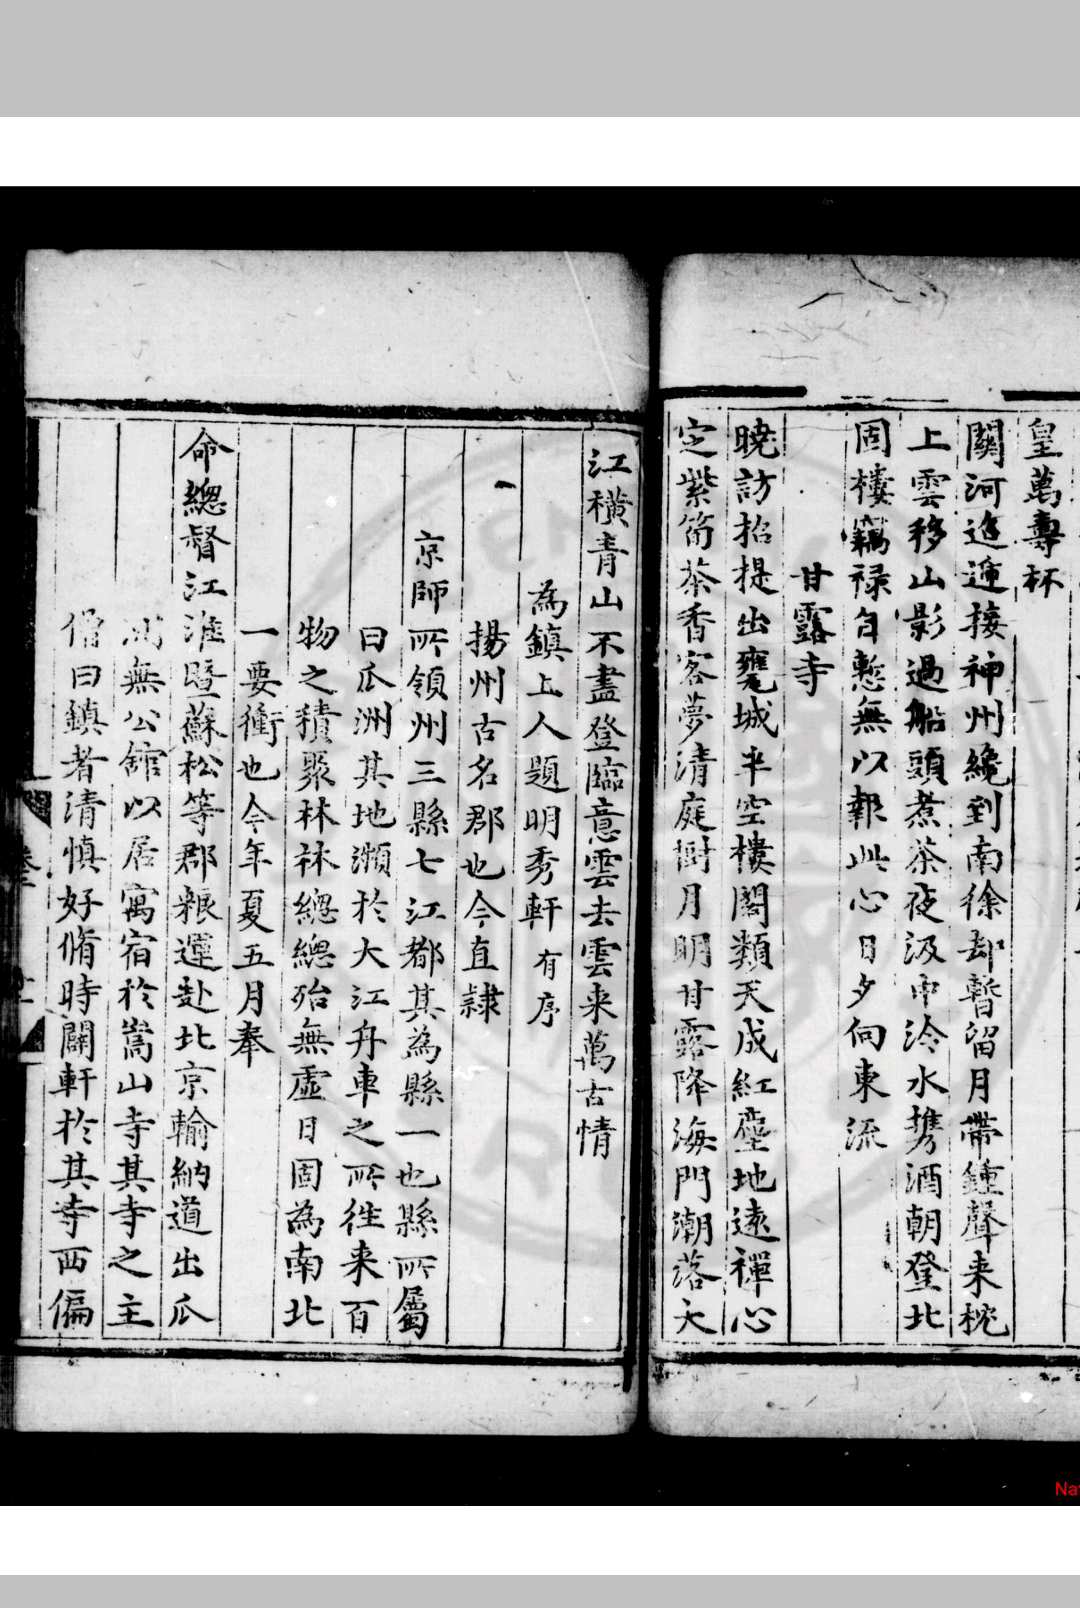 皇萬壽杯
關河迢遞接神州纔到南徐却暫留月帶鍾聲来枕
上雲移山影過船頭煮茶夜汲中泠水携酒朝登北
固樓竊祿自慙無以報此心日夕向東流
甘露寺
曉訪招提出甕城半空樓閣類天成紅塵地遠禪心
定紫筍茶香客夢清庭樹月明甘露降海門潮落大
江橫青山不盡登臨意雲去雲来萬古情
為鎮上人題明秀軒有序
揚州古名郡也今直隷
京師所領州三縣七江都其為縣一也縣所屬
曰瓜洲其地瀕於大江舟車之所徃来百
物之積聚林林總總殆無虛日固為南北
一要衝也今年夏五月奉
命總督江淮暨蘇松等郡粮運赴北京輸納道出瓜
洲無公舘以居寓宿於嵩山寺其寺之主
僧曰鎮者清慎好脩時闢軒於其寺西偏